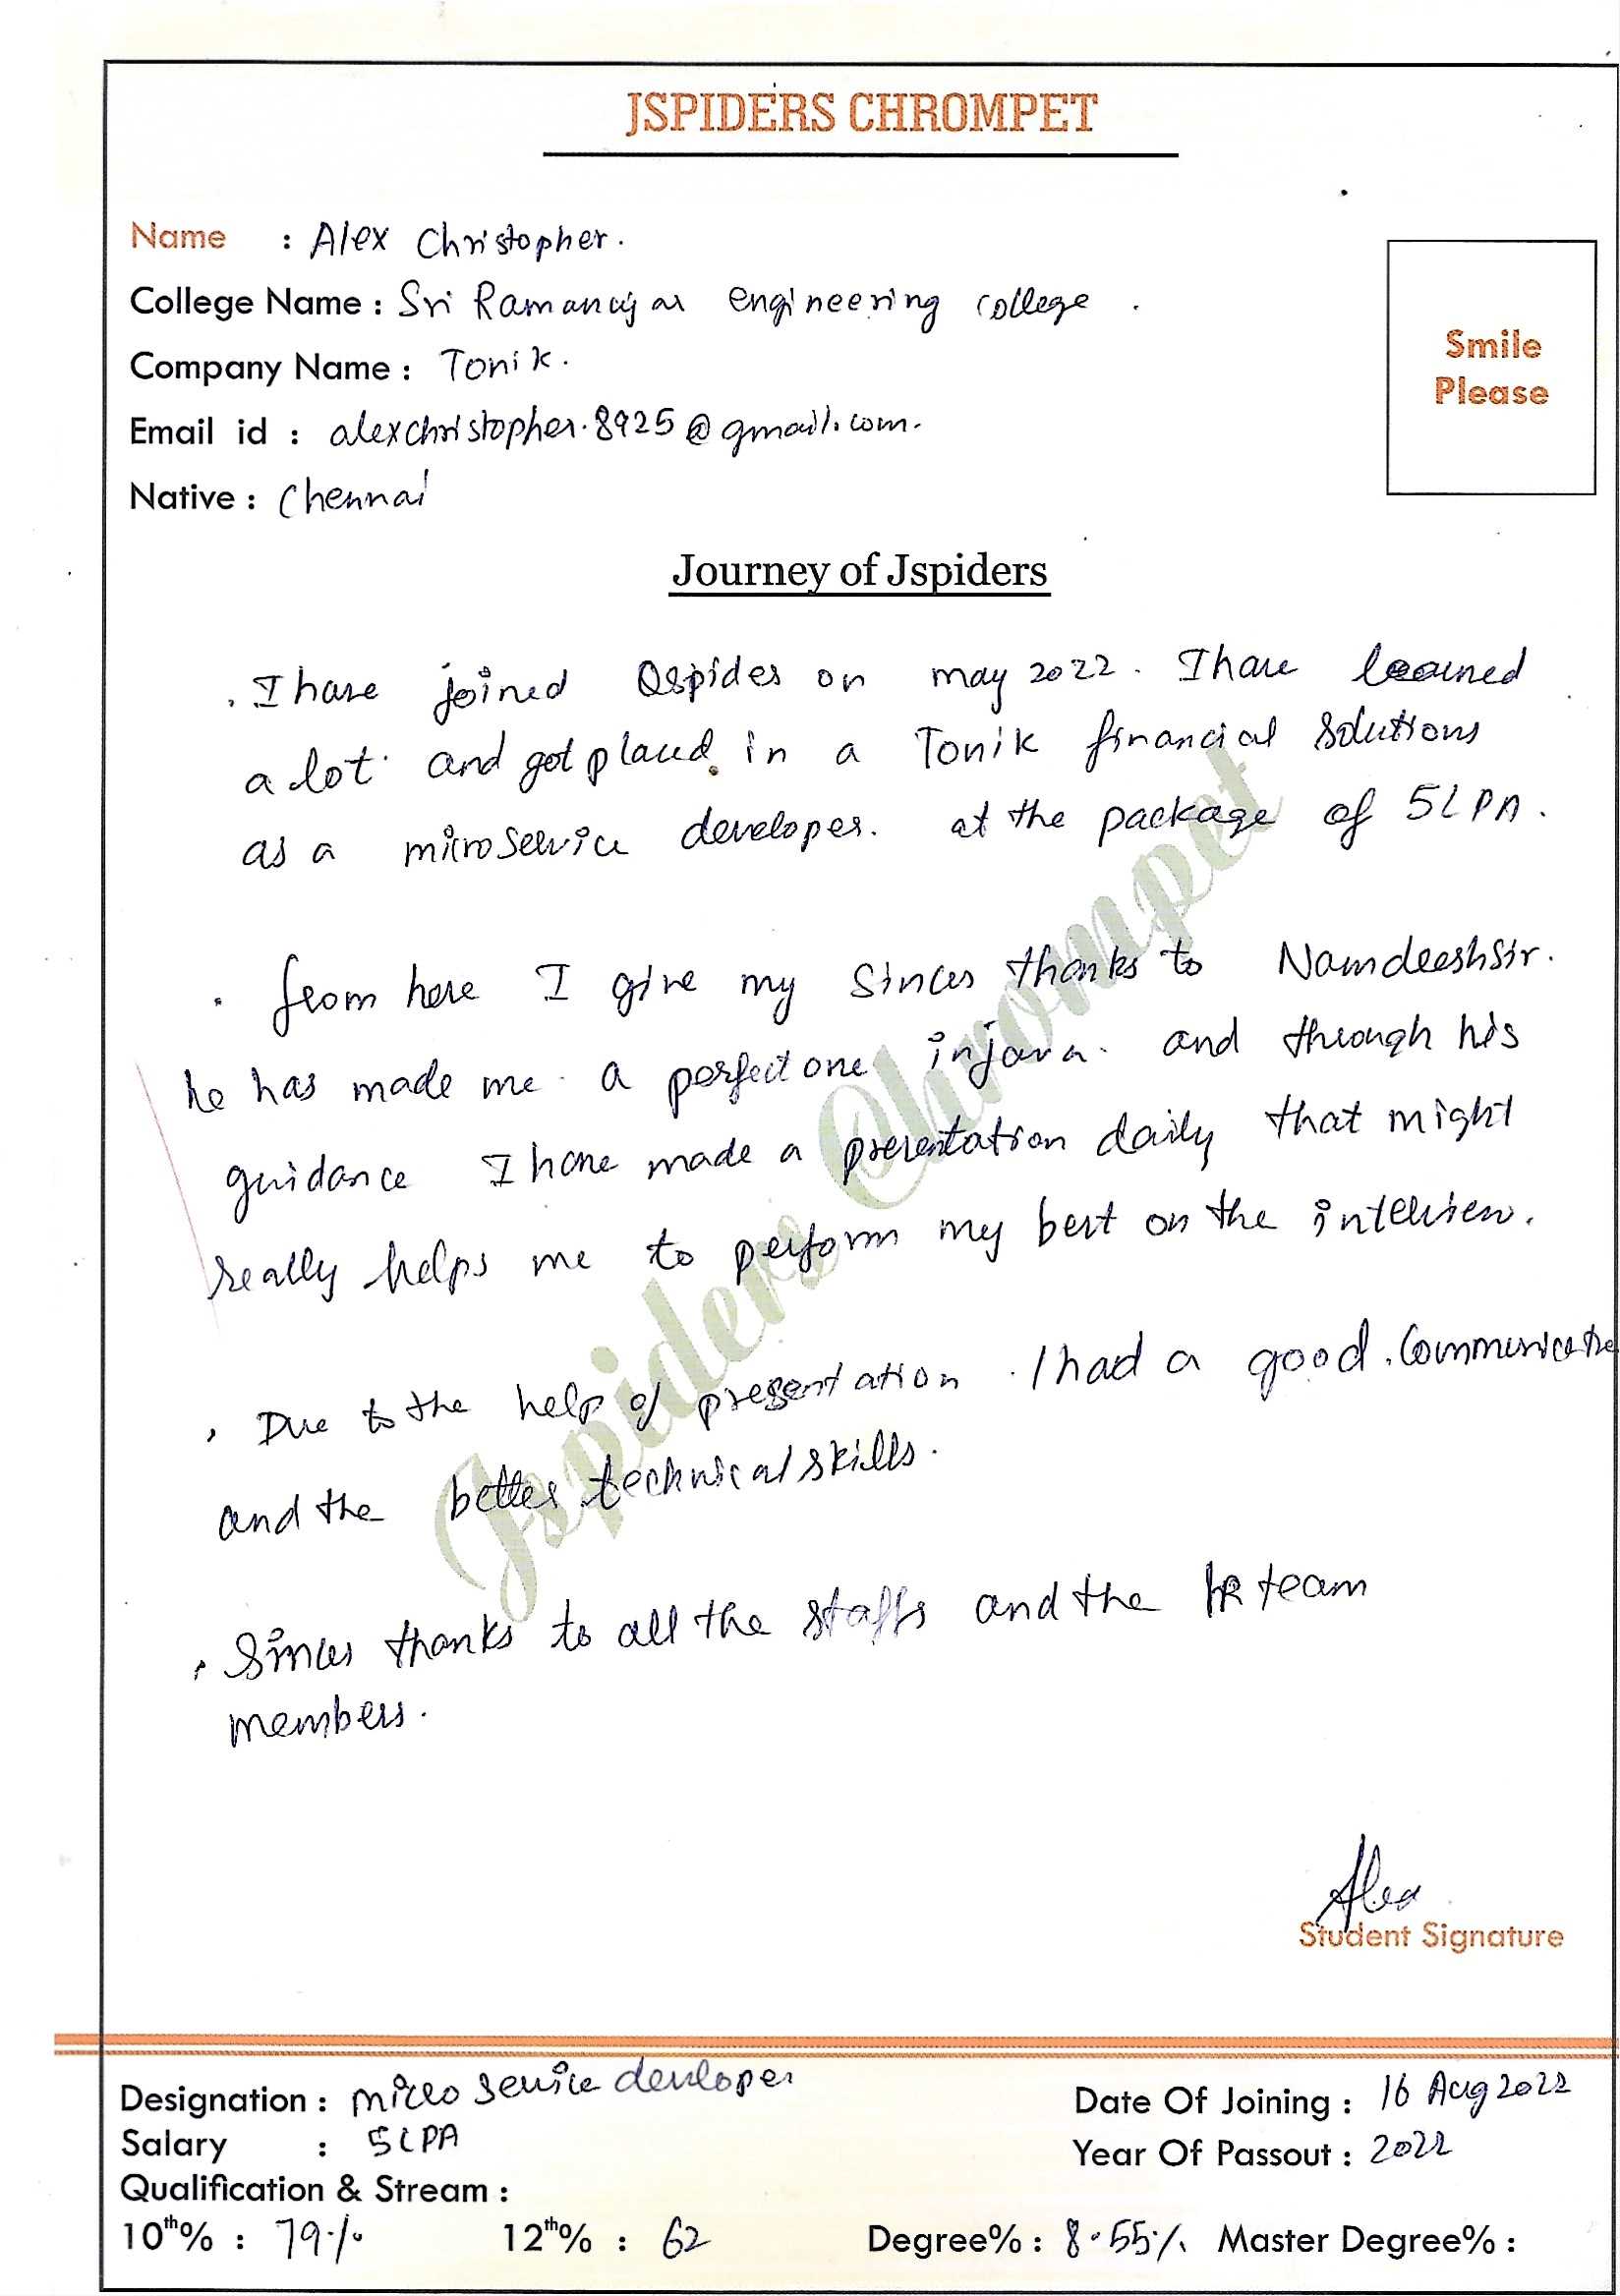 JSPIDERS CHROMPET
Name : Alex Christopher.
College Name : Sri Ramanujar engineering college .
Company Name : Tonik.
Email id : alexchristopher.8925@gmail.com.
Native : Chennai
Smile
Please
Journey of Jspiders
. I have joined Qspides on may 2022. I have learned
a lot. and got placed. in a Tonik financial solutions
as a microservice developer. at the package of 5LPA.
. from here I give my Sincer thanks to Namdeeshsir.
he has made me. a perfect one injava. and through his
guidance I have made a presentation daily that might
really helps me to perform my best on the interview.
. Due to the help of presentation . I had a good. Communicative
and the better technical skills.
. Sincer thanks to all the staffs and the HR team
members.
Jspiders Chrompet
Alex
Student Signature
Designation : micro service developer
Date Of Joining : 16 Aug 2022
Salary : 5LPA
Year Of Passout : 2022
Qualification & Stream :
10th% : 79% 12th% : 62 Degree% : 8.55% Master Degree% :